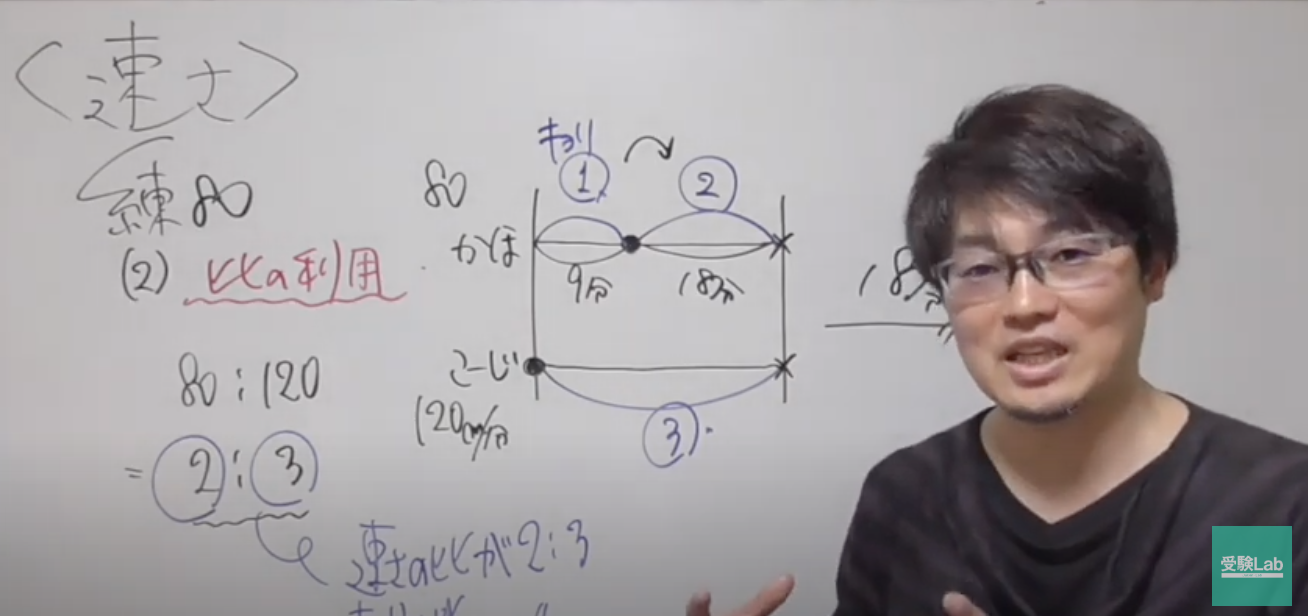 〈速さ〉
練80
(2) 比の利用
80:120
=②:③
速さの比が2:3
きょり
① ②
80
かほ
9分 18分
こーじ
120m/分
③
受験Lab